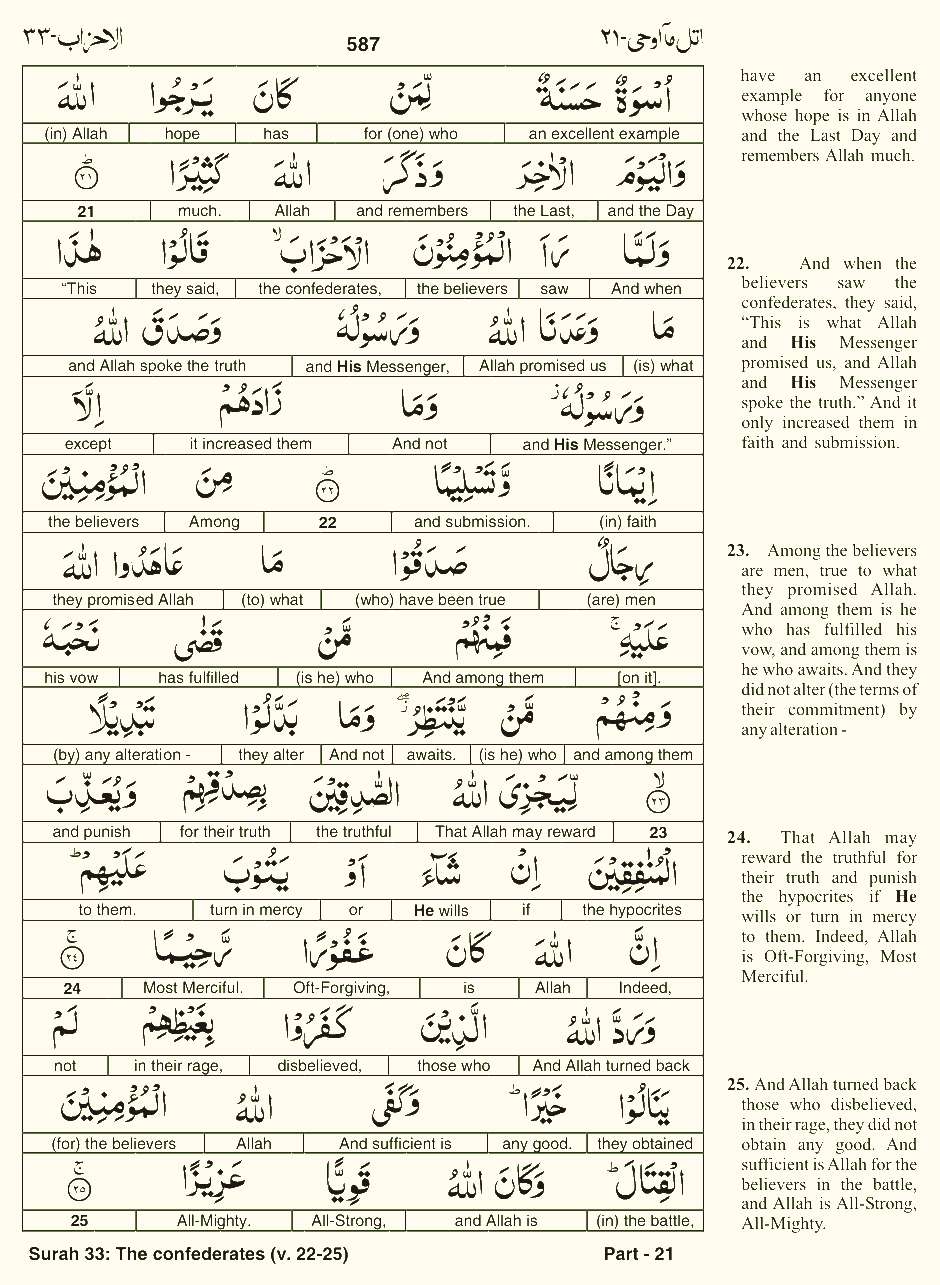 الاحزاب-٣٣ 587 اتل مآ اوحی-٢١
اُسْوَةٌ حَسَنَةٌ لِّمَنْ كَانَ يَرْجُوا اللّٰهَ
an excellent example for (one) who has hope (in) Allah
وَالْيَوْمَ الْاٰخِرَ وَذَكَرَ اللّٰهَ كَثِيْرًا ؕ ٢١
and the Day the Last, and remembers Allah much. 21
وَلَمَّا رَاَ الْمُؤْمِنُوْنَ الْاَحْزَابَ ۙ قَالُوْا هٰذَا
And when saw the believers the confederates, they said, “This
مَا وَعَدَنَا اللّٰهُ وَرَسُوْلُهٗ وَصَدَقَ اللّٰهُ
(is) what Allah promised us and His Messenger, and Allah spoke the truth
وَرَسُوْلُهٗ ز وَمَا زَادَهُمْ اِلَّاۤ
and His Messenger.” And not it increased them except
اِيْمَانًا وَّتَسْلِيْمًا ؕ ٢٢ مِنَ الْمُؤْمِنِيْنَ
(in) faith and submission. 22 Among the believers
رِجَالٌ صَدَقُوْا مَا عَاهَدُوا اللّٰهَ
(are) men (who) have been true (to) what they promised Allah
عَلَيْهِ ۚ فَمِنْهُمْ مَّنْ قَضٰى نَحْبَهٗ
[on it]. And among them (is he) who has fulfilled his vow
وَمِنْهُمْ مَّنْ يَّنْتَظِرُ ۖ وَمَا بَدَّلُوْا تَبْدِيْلًا
and among them (is he) who awaits. And not they alter (by) any alteration -
ۙ ٢٣ لِّيَجْزِىَ اللّٰهُ الصّٰدِقِيْنَ بِصِدْقِهِمْ وَيُعَذِّبَ
23 That Allah may reward the truthful for their truth and punish
الْمُنٰفِقِيْنَ اِنْ شَآءَ اَوْ يَتُوْبَ عَلَيْهِمْ ؕ
the hypocrites if He wills or turn in mercy to them.
اِنَّ اللّٰهَ كَانَ غَفُوْرًا رَّحِيْمًا ۚ ٢٤
Indeed, Allah is Oft-Forgiving, Most Merciful. 24
وَرَدَّ اللّٰهُ الَّذِيْنَ كَفَرُوْا بِغَيْظِهِمْ لَمْ
And Allah turned back those who disbelieved, in their rage, not
يَنَالُوْا خَيْرًا ؕ وَكَفَى اللّٰهُ الْمُؤْمِنِيْنَ
they obtained any good. And sufficient is Allah (for) the believers
الْقِتَالَ ؕ وَكَانَ اللّٰهُ قَوِيًّا عَزِيْزًا ۚ ٢٥
(in) the battle, and Allah is All-Strong, All-Mighty. 25
have an excellent
example for anyone
whose hope is in Allah
and the Last Day and
remembers Allah much.
22. And when the
believers saw the
confederates, they said,
“This is what Allah
and His Messenger
promised us, and Allah
and His Messenger
spoke the truth.” And it
only increased them in
faith and submission.
23. Among the believers
are men, true to what
they promised Allah.
And among them is he
who has fulfilled his
vow, and among them is
he who awaits. And they
did not alter (the terms of
their commitment) by
any alteration -
24. That Allah may
reward the truthful for
their truth and punish
the hypocrites if He
wills or turn in mercy
to them. Indeed, Allah
is Oft-Forgiving, Most
Merciful.
25. And Allah turned back
those who disbelieved,
in their rage, they did not
obtain any good. And
sufficient is Allah for the
believers in the battle,
and Allah is All-Strong,
All-Mighty.
Surah 33: The confederates (v. 22-25) Part - 21